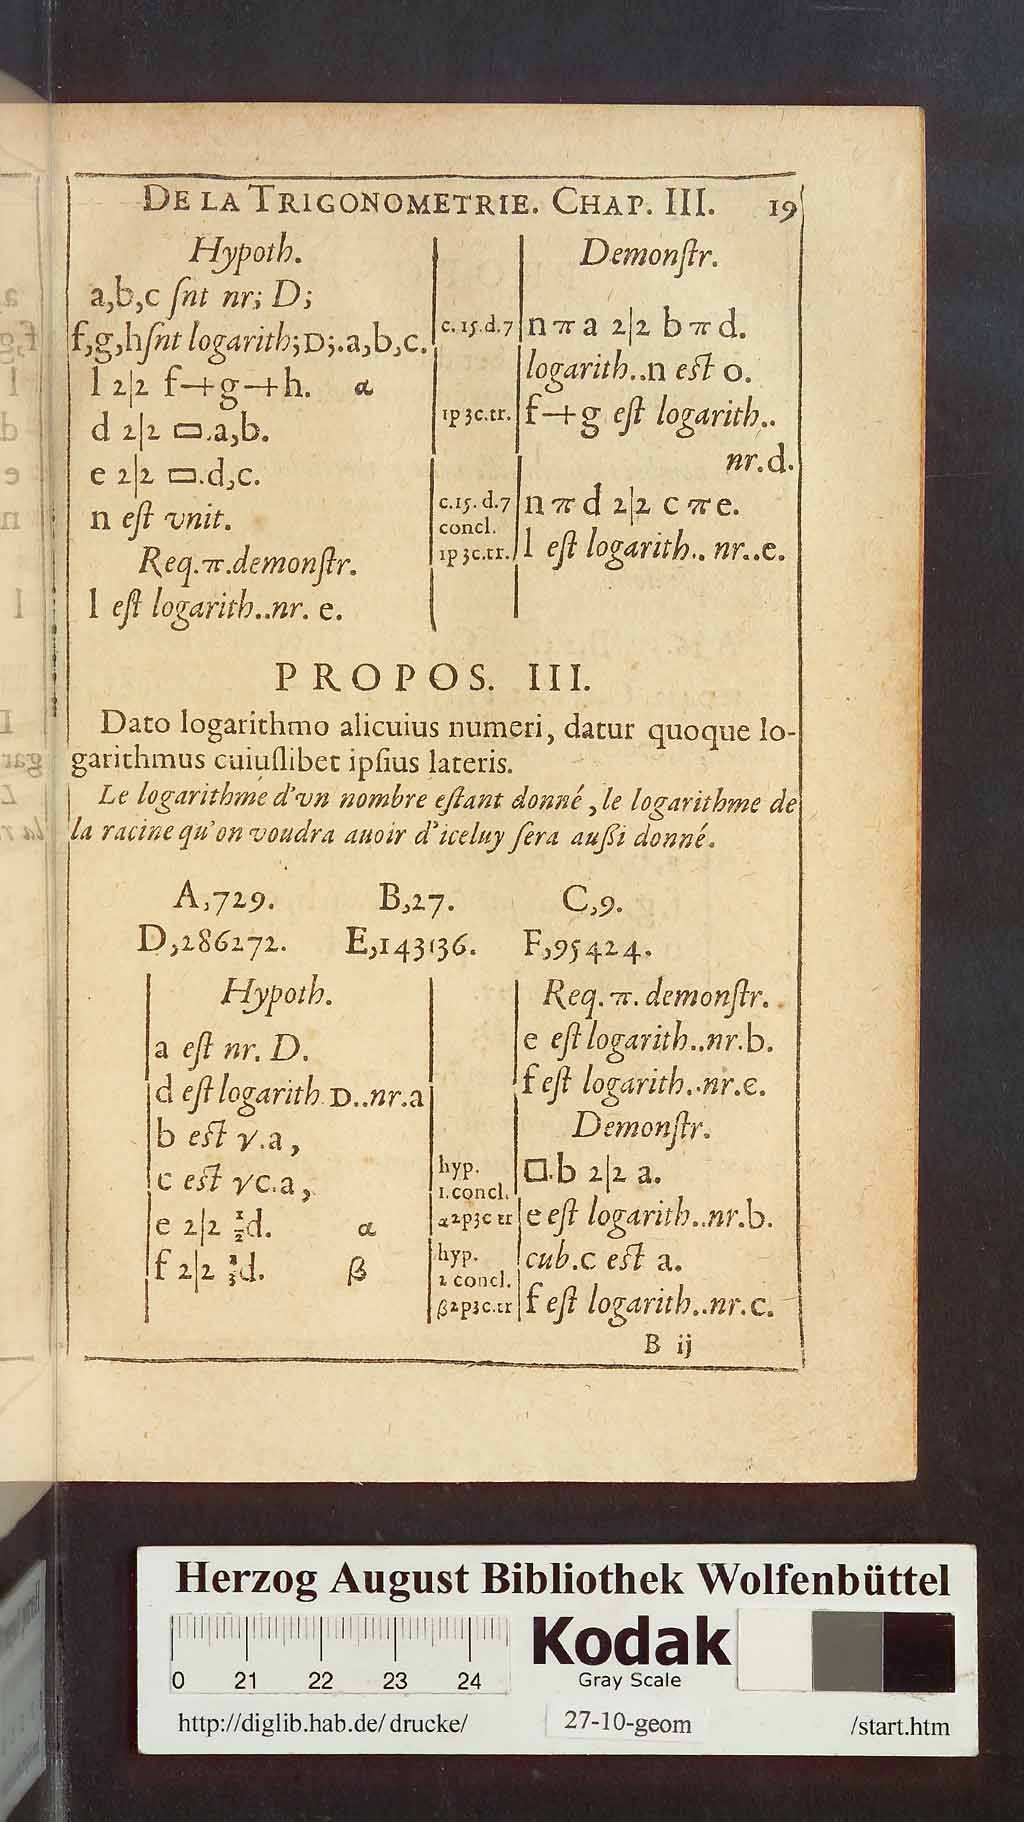 DE LA TRIGONOMETRIE. CHAP. III. 19
Hypoth.
a,b,c ſnt nr; D;
f,g,h ſnt logarith;D;.a,b,c.
l 2|2 f+g+h. α
d 2|2 ▭.a,b.
e 2|2 ▭.d,c.
n eſt vnit.
Req.π.demonſtr.
l eſt logarith..nr. e.
Demonſtr.
c.15.d.7 n π a 2|2 b π d.
logarith..n eſt o.
1p3c.tr. f+g eſt logarith..
nr.d.
c.15.d.7 n π d 2|2 c π e.
concl.
1p3c.tr. l eſt logarith.. nr..e.
PROPOS. III.
Dato logarithmo alicuius numeri, datur quoque lo-
garithmus cuiuſlibet ipſius lateris.
Le logarithme d'vn nombre eſtant donné, le logarithme de
la racine qu'on voudra auoir d'iceluy ſera außi donné.
A,729. B,27. C,9.
D,286272. E,143136. F,95424.
Hypoth.
a eſt nr. D.
d eſt logarith. D..nr.a
b eſt γ.a,
c eſt γc.a,
e 2|2 ½d. α
f 2|2 ⅓d. β
Req. π. demonſtr.
e eſt logarith..nr.b.
f eſt logarith..nr.c.
Demonſtr.
hyp. □.b 2|2 a.
1.concl.
α2p3c tr e eſt logarith..nr.b.
hyp. cub.c eſt a.
2 concl.
β2p3c.tr f eſt logarith..nr.c.
B ij
Herzog August Bibliothek Wolfenbüttel
0 21 22 23 24
Kodak
Gray Scale
http://diglib.hab.de/drucke/ 27-10-geom /start.htm